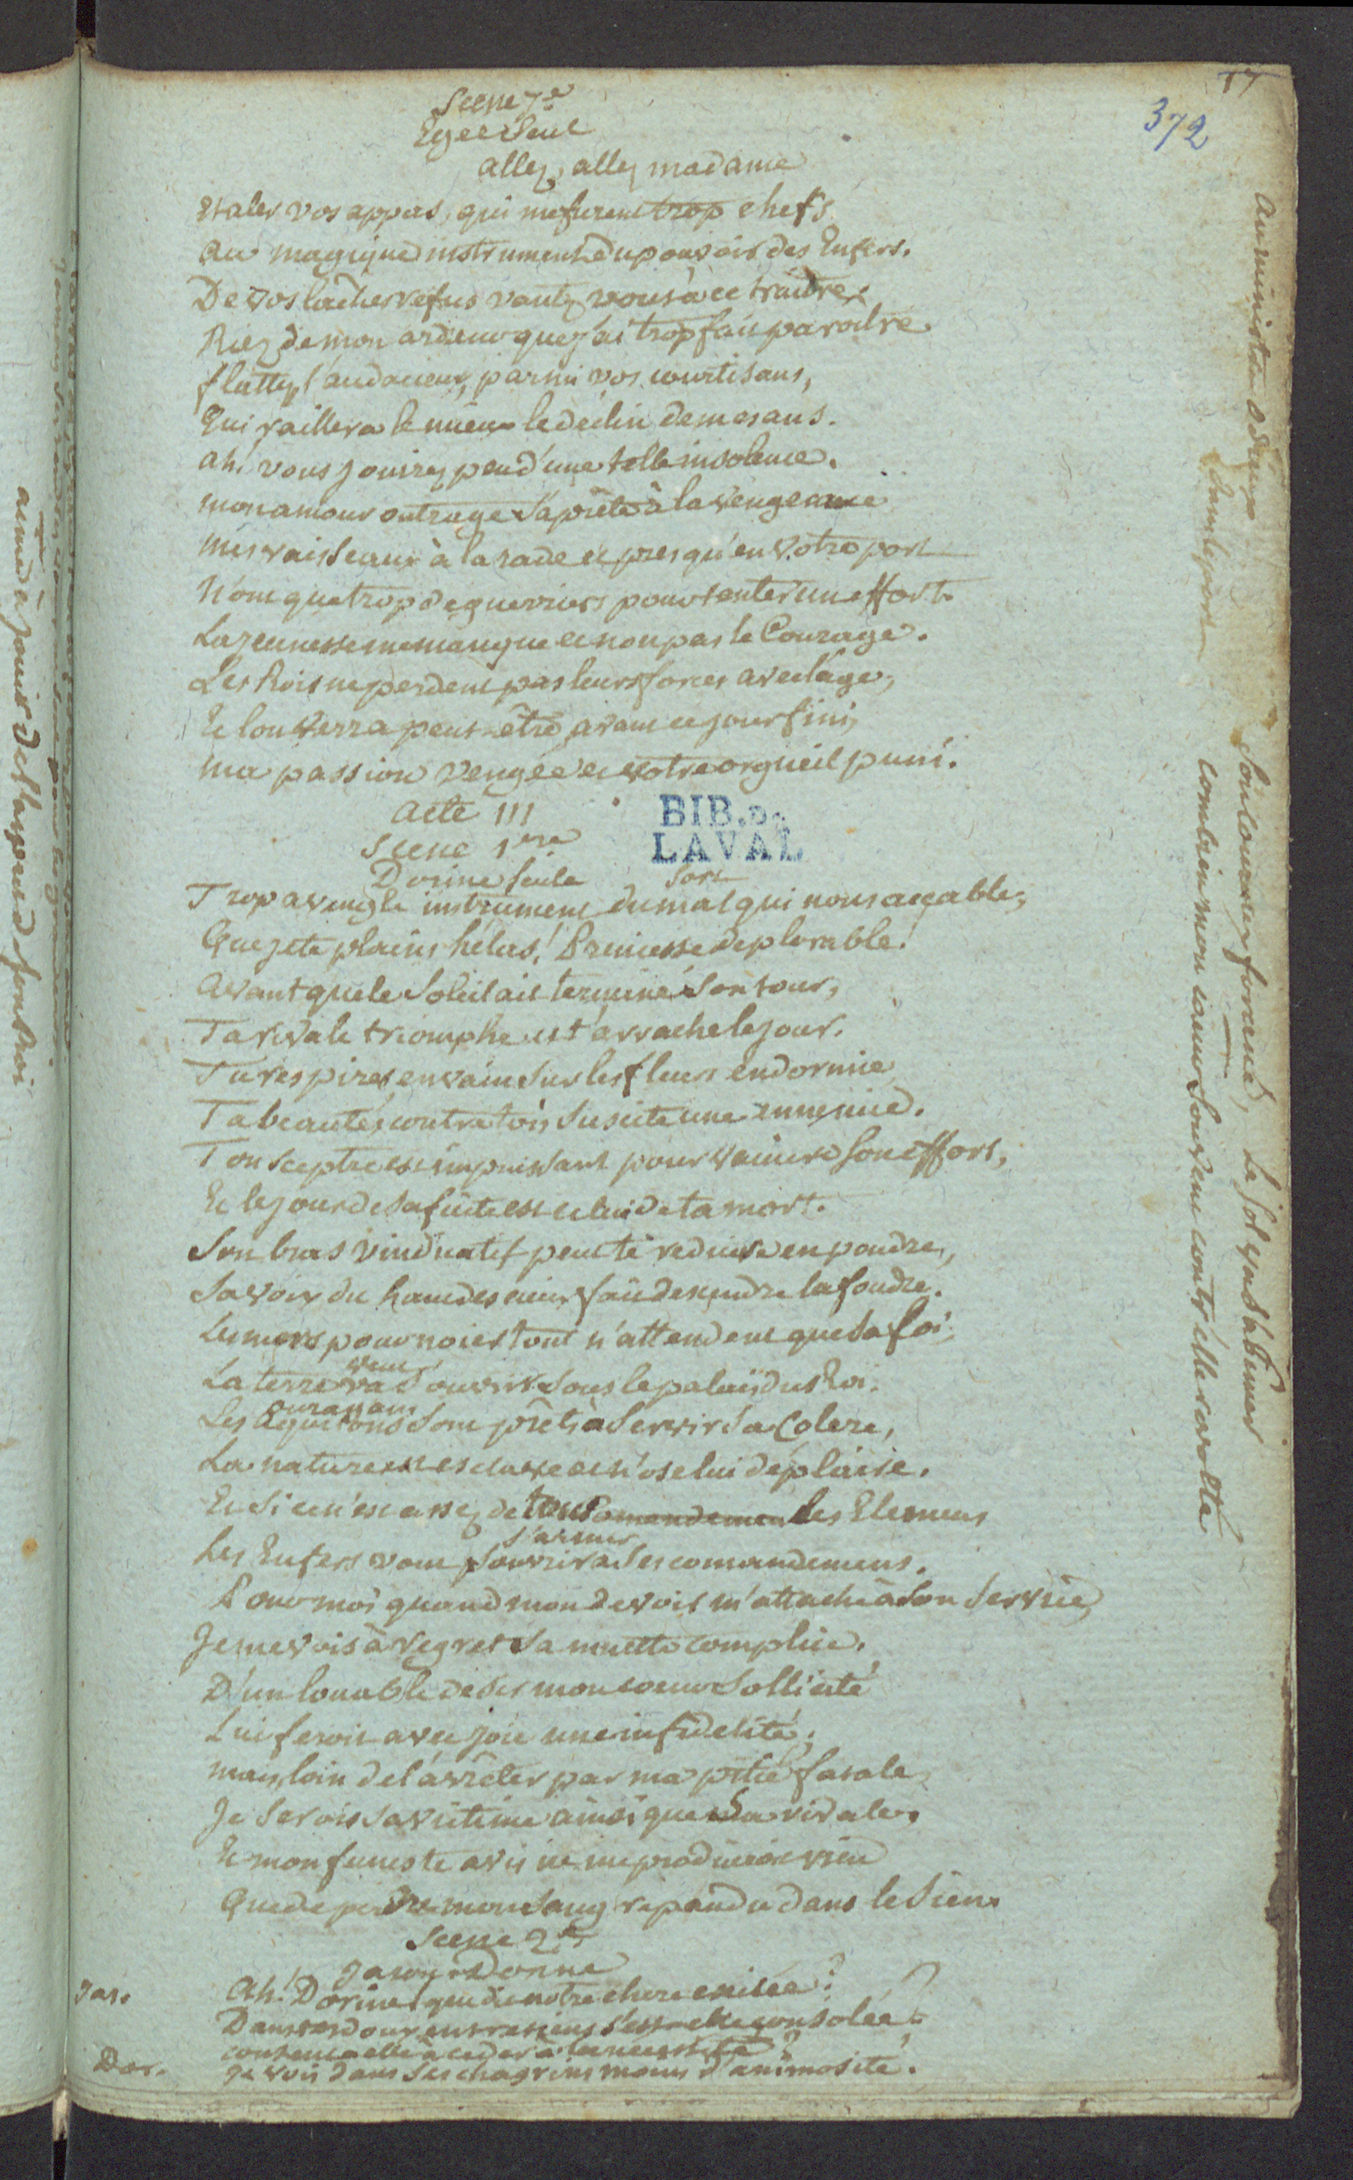 17
372
Scene 7e
Egee Seul
allez, allez madame
Etaler vos appas, qui me furent trop chers
au magique instrument du pouvoir des Enfers.
De vos laches refus vantez vous à ce traitre,
Riez de mon ardeur que j'ai trop fait paroitre
flattez l'audacieux, parmi vos courtisans,
Qui raillera le mieux le déclin de mes ans.
ah! vous jouirez peu d'une telle insolence.
mon amour outragé s'aprête à la vengeance
mes vaisseaux à la rade et presqu'en votre port
N'ont que trop de guerriers pour tenter un effort.
La jeunesse me manque et non pas le Courage.
Les Rois ne perdent pas leurs forces avec l'âge,
Et l'on verra peut-être, avant ce jour fini,
ma passion vengée et votre orgueil puni.
acte III
Scene 1ere
Dorine seule
sort
Trop aveugle instrument du mal qui nous accable,
Que je te plains hélas! Princesse deplorable!
avant que le Soleil ait terminé son tour,
Ta rivale triomphe et t'arrache le jour.
Tu respires en vain sur les fleurs endormie
Ta beauté contre toi suscite une ennemie.
Ton sceptre est impuissant pour vaincre son effort,
Et le jour de sa fuite est celui de ta mort.
Son bras vindicatif peut te reduire en poudre,
Sa voix du haut des cieux fait descendre la foudre.
Les mers pour noier tout n'attendent que sa foi
veut
La terre va s'ouvrir sous le palais du Roi.
ouragans
Les aquilons sont prêts à servir sa Colere,
La nature est esclave et n'ose lui déplaire.
Et si ce n'est assez de tous comandemen les Elemens
s'armer
Les Enfers vont s'ouvrir à ses comandemens.
Pour moi quand mon devoir m'attache à son service
Je me vois à regret sa muette complice.
D'un louable desir mon coeur sollicité
Lui feroit avec joie une infidelité;
mais loin de l'arrêter par ma pitié fatale,
Je serois sa victime ainsi que sa rivale.
Et mon funeste avis ne me produiroit rien
Que de perdre mon sang repandu dans le sien.
Scene 2e
Jason et Dorine
Jas. Ah! Dorine! que dit notre chere exilée?
Dans tes doux entretiens s'est-elle consolée?
consent-elle à ceder à la necessité?
Dor. Je vois dans ses chagrins moins d'animosité.
Dans le port
combien mon coeur souvent contr'elle revolta
aimed à jouir de l'aspect de son Roi